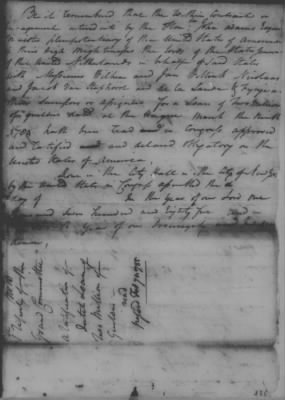 Be it remembered that the within Contract or
agreement entered into by the Hon. John Adams Esquire
Minister plenipotentiary of the United States of America
to their high Mightinesses the lords of the States general
of the United Netherlands in behalf of said States
with Messieurs Wilhem and Jan Willink Nicolaas
and Jacob Van Staphorst and de la Lande & Fynje
their Successors or assigns for a Loan of Two Million
of guilders dated at the Hague March the Ninth
1784 hath been read in Congress approved
and ratified and declared Obligatory on the
United States of America.
Done in the City Hall in the City of New York
by the United States in Congress assembled the
day of In the Year of our Lord one
Seven hundred and Eighty five and in
Year of our Sovereignty and
No. 10
Report of the
Grand Committee
a ratification of
Dutch Loan of
Two Million of
Guilders
read